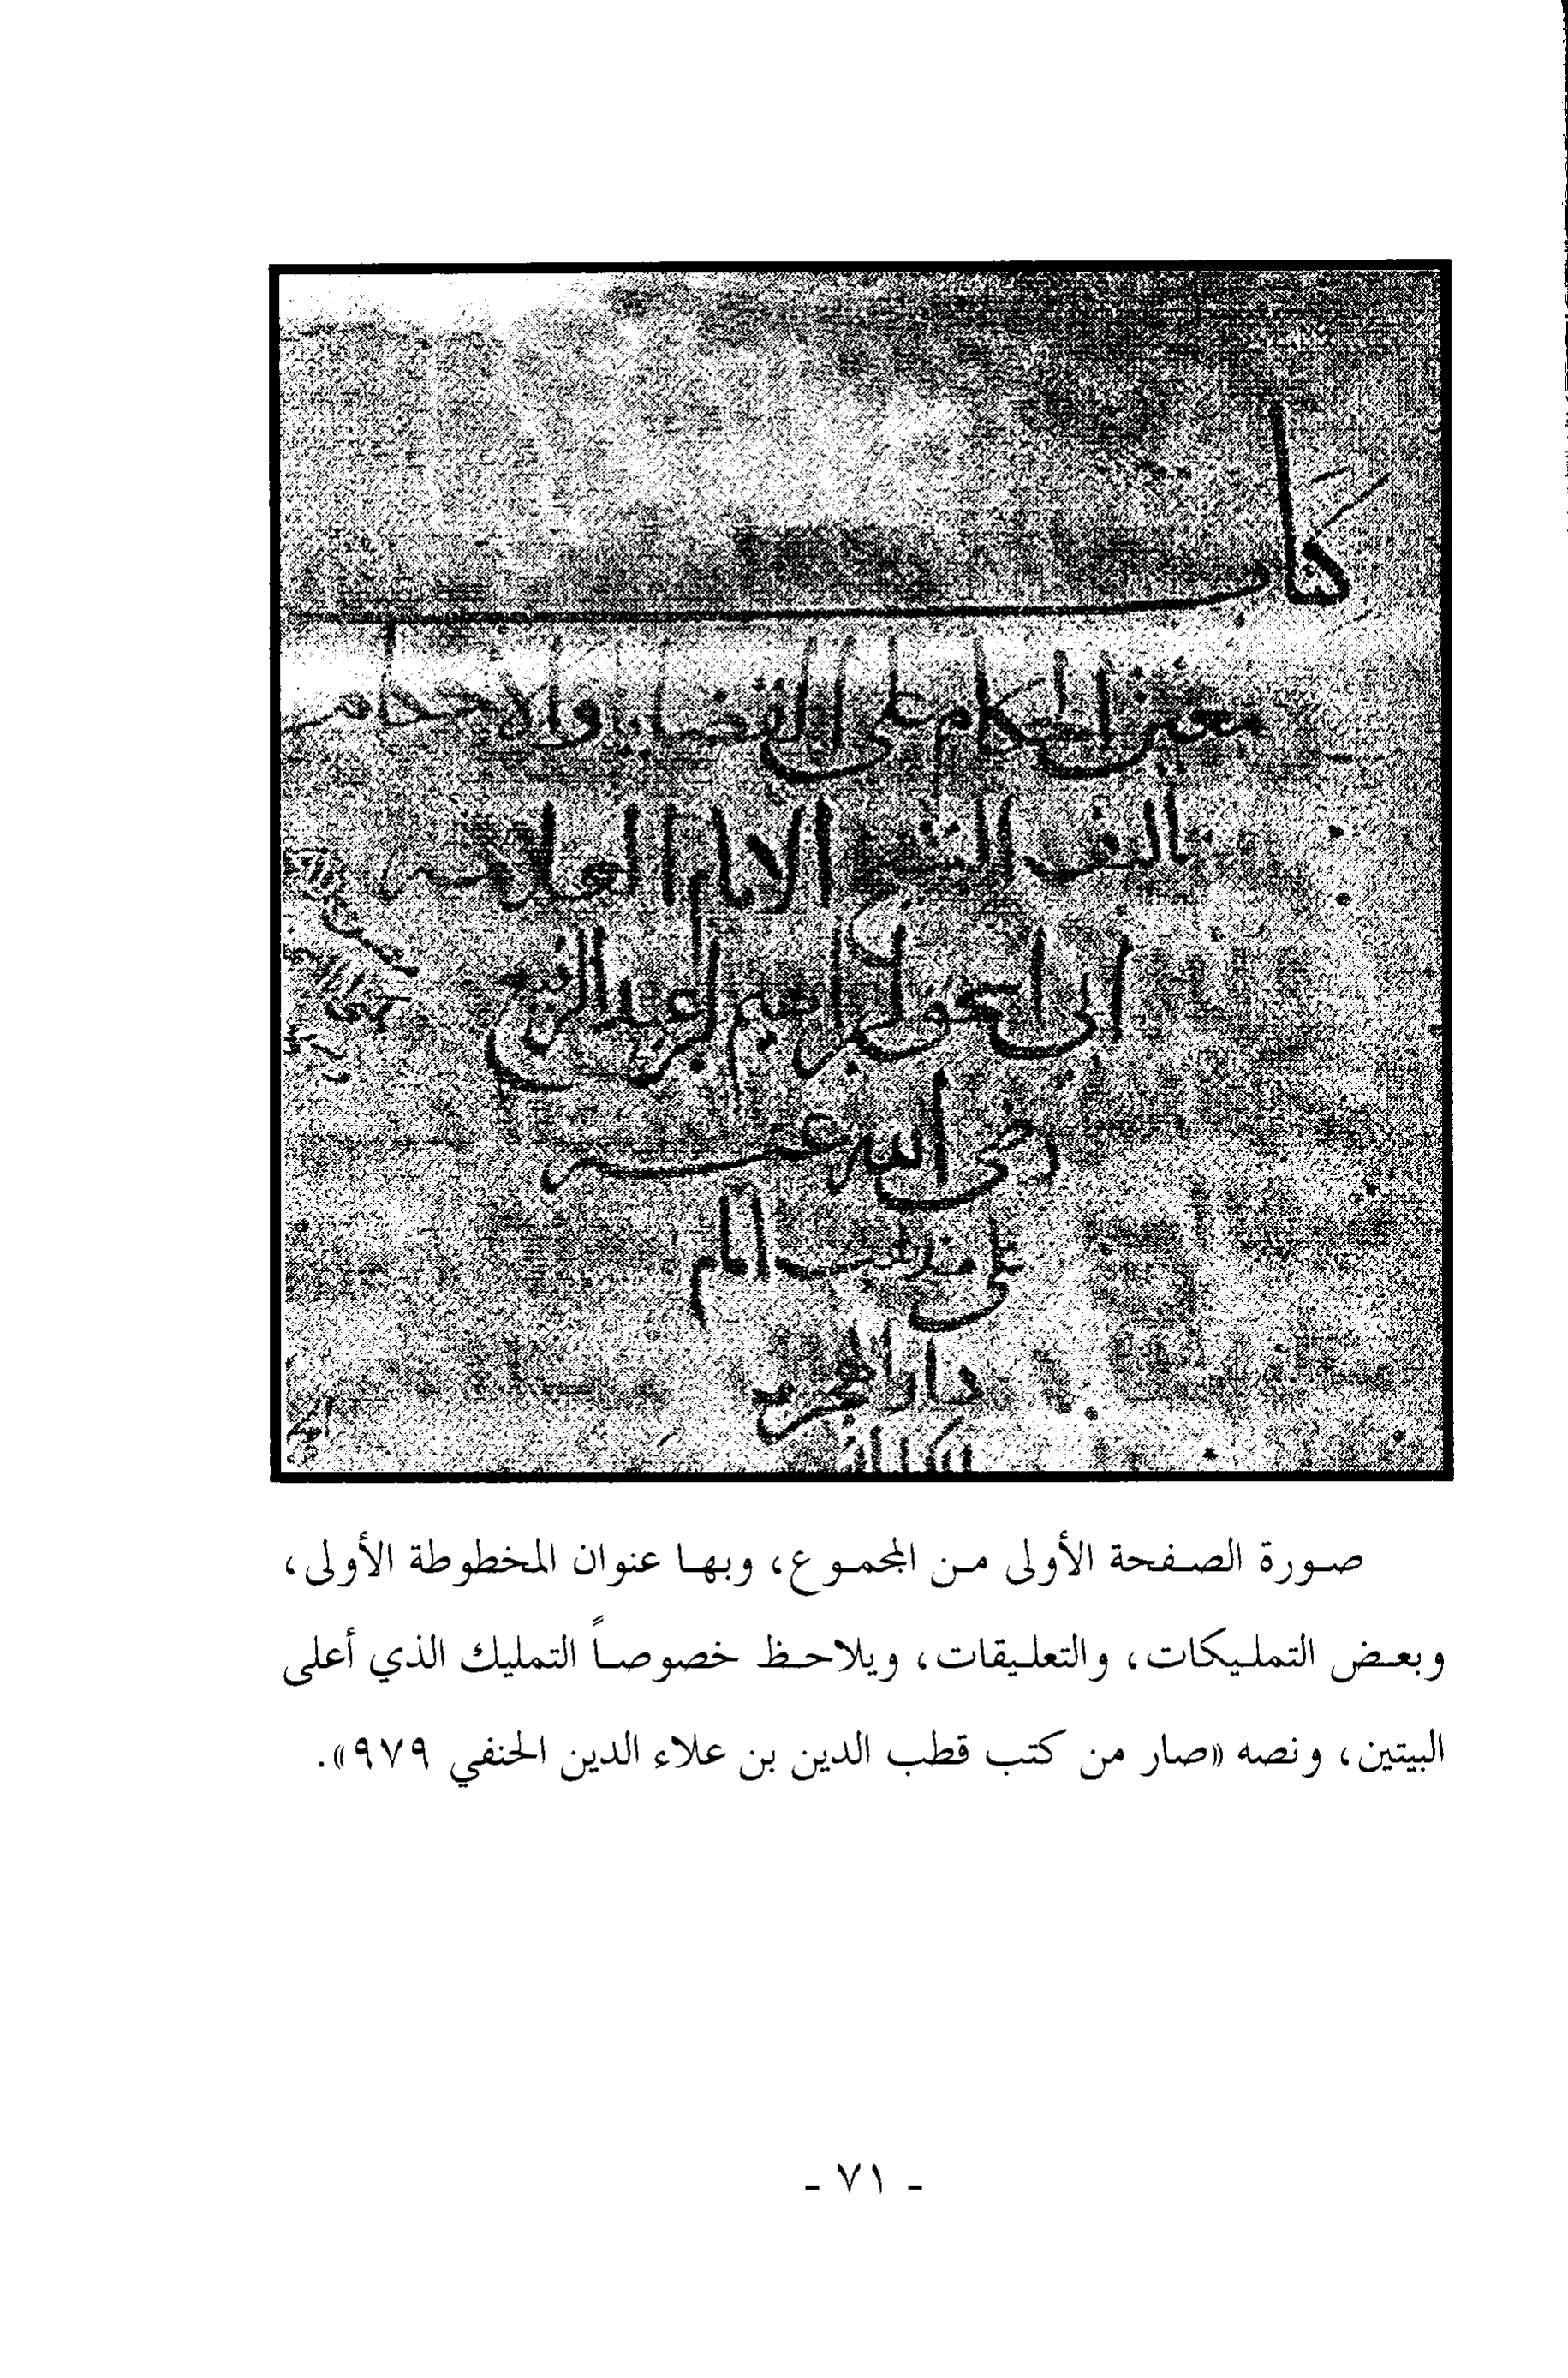 كتاب
معين الحكام على القضايا والاحكام
تاليف الشيخ الامام العلامه
ابى اسحق ابراهيم ابن عبد الرفيع
رضى الله عنه
على مذهب امام
دار الهجره
صورة الصفحة الأولى من المجموع، وبها عنوان المخطوطة الأولى،
وبعض التمليكات، والتعليقات، ويلاحظ خصوصاً التمليك الذي أعلى
البيتين، ونصه «صار من كتب قطب الدين بن علاء الدين الحنفي ٩٧٩».
- ٧١ -